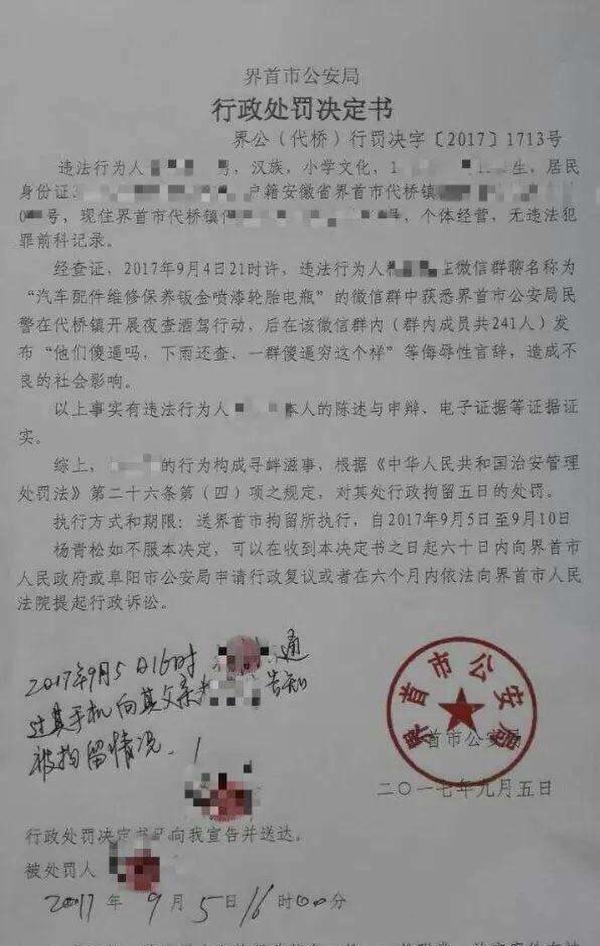 界首市公安局
行政处罚决定书
界公（代桥）行罚决字〔2017〕1713号
违法行为人 号，汉族，小学文化，1 生，居民
身份证 户籍安徽省界首市代桥镇
0 号，现住界首市代桥镇 号，个体经营，无违法犯
罪前科记录。
经查证，2017年9月4日21时许，违法行为人 在微信群聊名称为
“汽车配件维修保养钣金喷漆轮胎电瓶”的微信群中获悉界首市公安局民
警在代桥镇开展夜查酒驾行动，后在该微信群内（群内成员共241人）发
布“他们傻逼吗，下雨还查、一群傻逼穷这个样”等侮辱性言辞，造成不
良的社会影响。
以上事实有违法行为人 本人的陈述与申辩、电子证据等证据证
实。
综上， 的行为构成寻衅滋事，根据《中华人民共和国治安管理
处罚法》第二十六条第（四）项之规定，对其处行政拘留五日的处罚。
执行方式和期限：送界首市拘留所执行，自2017年9月5日至9月10日
杨青松如不服本决定，可以在收到本决定书之日起六十日内向界首市
人民政府或阜阳市公安局申请行政复议或者在六个月内依法向界首市人民
法院提起行政诉讼。
2017年9月5日16时 通
过其手机向其父亲 告知
被拘留情况。
界首市公安局
界首市公安局
二〇一七年九月五日
行政处罚决定书已向我宣告并送达。
被处罚人
2017年9月5日16时00分